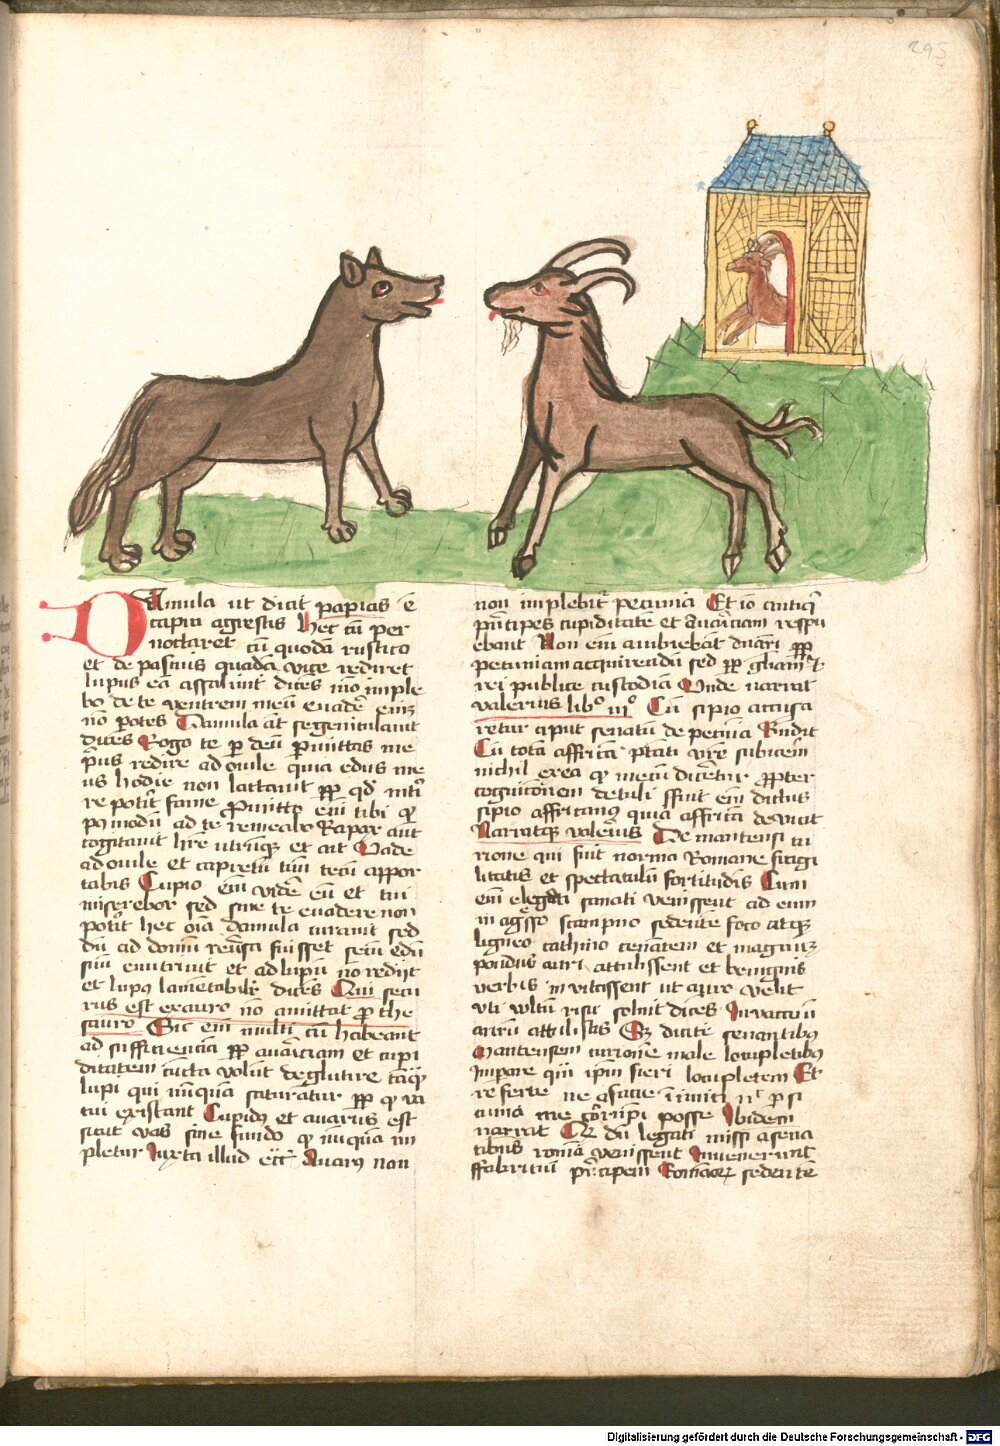 295
Damula ut dicit papias ē
capra agrestis hec cū per
noctaret cū quodā rustico
et de pascuis quadā vice rediret
lupus eā assaliuit dicēs mō imple
bo de te ventrem meū euadē enī
nō potes Damula aūt se geniculauit
dicēs Rogo te per deū permittas me
prius redire ad ouile quia edus me
us hodie non lactauit
re poterit fame Promitto enī tibi
modum ad te remeabo Rapax aūt
cogitauit hēre utrūqꝫ et ait Vade
ad ouile et capretū tuū tecū appor
tabis Cupio enī vidē eū et tui
miserebor sed sine te euadere non
poterit hec oīa damula iurauit sed
dū ad domū reuersa fuisset secū edū
suū enutriuit et ad lupū nō redijt
et lupus lamētabilr dicēs Qui secu
rus est ex auro nō amittat pro the
sauro Sic enī multi cū habeant
ad sufficienciā auariciam et cupi
ditatem cūcta volūt deglutire tāqͣ
lupi qui nūquā saturātur va
cui existant Cupidus et auarus est
sicut vas sine fundo nūquā im
pletur Iuxta illud Auarus non
non implebitr pecunia Et iō antiqi
prīcipes cupiditatē et auariciam respu
ebant Non enī ambiebāt
pecuniam acquirendā sed gloriam
rei publice custodiā Unde narrat
valerius libo iiio Cū sipio accusa
retur aput senatū de pecunia Rndit
Cū totā affricā ptati vre subiecerī
nichil ex ea meum diceretur propter
cognicionem detuli ffuit enī dictus
sipio affricanus quia affricā deuicit
Narratqꝫ valerius De
rione qui fuit norma Romane frugi
litatis et spectaculū fortitudīs Cum
enī legati samati venissent ad eum
in agresto scampno sedentē foco atqꝫ
ligneo cathino cenantem et magnuꝫ
pondus auri attulissent et benignis
verbis inuitassent ut auro vellet
vti vultū risu soluit dicēs In vacuū
aurū attulistis dicite senantibus
curionē male locupletibus
imperare qm ipm fieri locupletem Et
referte me a facie
cunia me posse Ibidem
narrat dū legati missi a sena
tibus romā venissent Inuenerunt
ffabriciū prīcipem Romanoꝝ sedentē
Digitalisierung gefördert durch die Deutsche Forschungsgemeinschaft - DFG